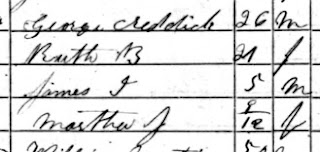 George Reddick 26 m
Ruth B 21 f
James I 5 m
Martha J 8/12 f